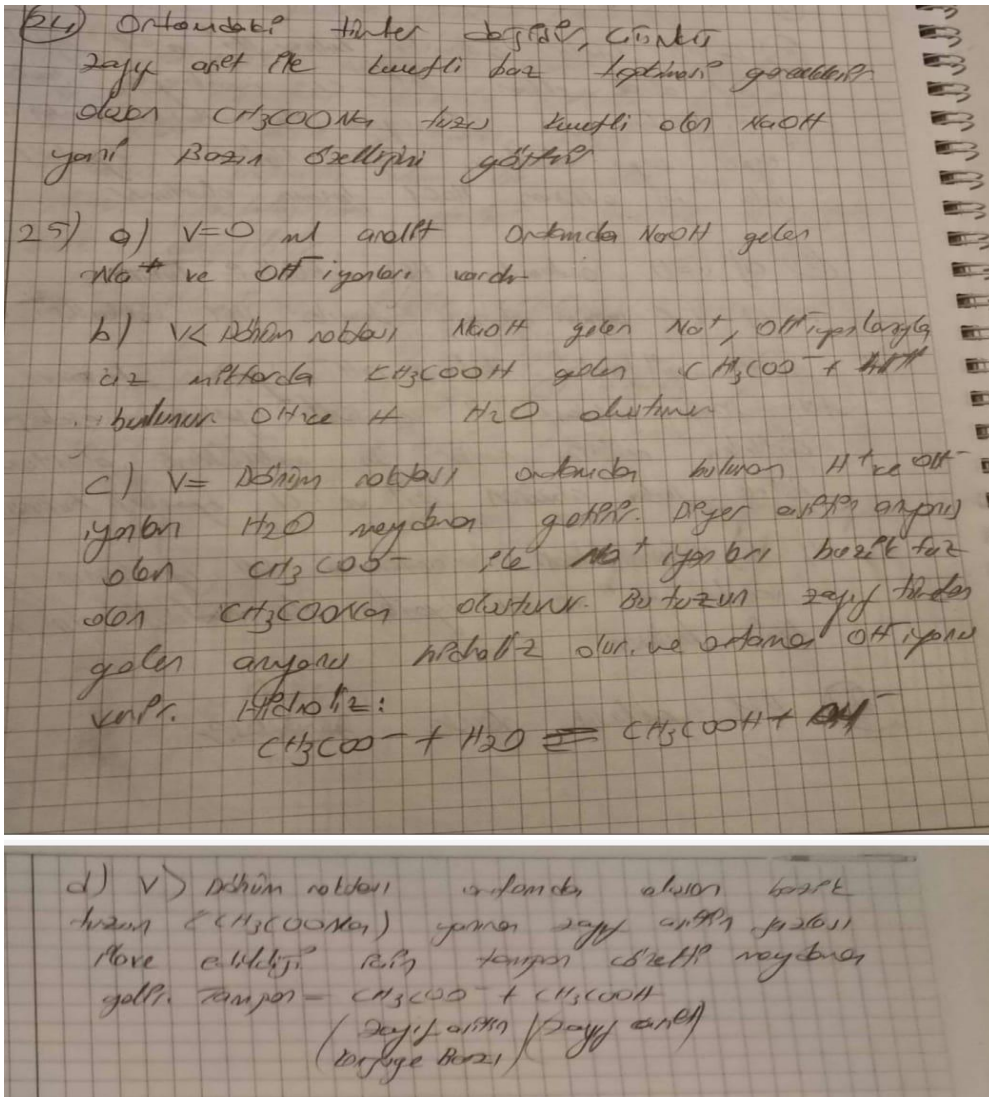 24) Ortamdaki türler değişir, çünkü
zayıf asit ile kuvvetli baz tepkimesi gerçekleşir
olan CH3COONa tuzu kuvvetli olan NaOH
yani Bazın özelliğini gösterir
25) a) V=0 ml analit Ortamda NaOH gelen
Na+ ve OH- iyonları vardır
b) V< Dönüm noktası NaOH gelen Na+, OH- iyonlarıyla
az miktarda CH3COOH gelen CH3COO- +
bulunur. OH ve H H2O oluşturur
c) V= Dönüm noktası ortamda bulunan H+ ve OH-
iyonları H2O meydana getirir. Diğer asitin anyonu
olan CH3COO- ile Na+ iyonları bazik tuz
olan CH3COONa oluşturur. Bu tuzun zayıf türden
gelen anyonu hidroliz olur. ve ortama OH iyonu
verir. Hidroliz:
CH3COO- + H2O ⇌ CH3COOH + OH-
d) V> Dönüm noktası ortamda oluşan bazik
tuzun (CH3COONa) yanına zayıf asitin fazlası
ilave edildiği için tampon çözelti meydana
gelir. Tampon = CH3COO- + CH3COOH
(Zayıf asitin) (Zayıf asit)
(konjuge Bazı)